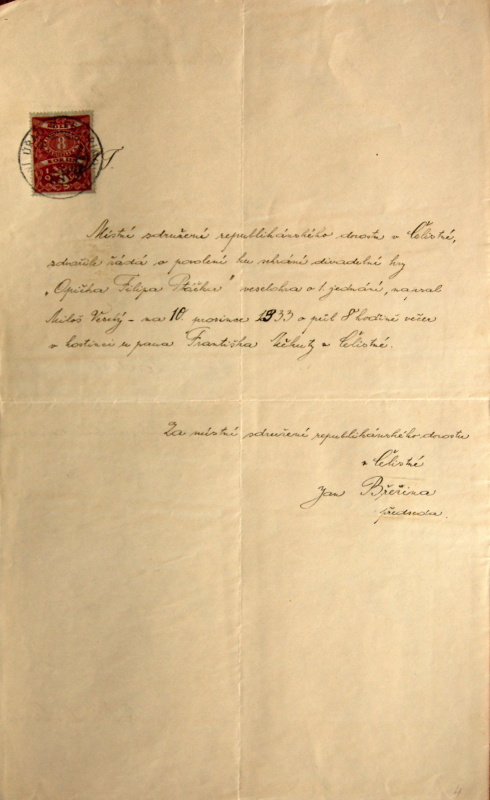 8
T.
Místní sdružení republikánského dorostu v Čelistné,
zdvořile žádá o povolení ku sehrání divadelní hry
„Opička Filipa Ptáčka" veselohra o 1 jednání, napsal
Miloš Veselý – na 10 prosince 1933 o půl 8 hodině večer
v hostinci u pana Františka v Čelistné.
Za místní sdružení republikánského dorostu
v Čelistné
Jan Březina
předseda.
4